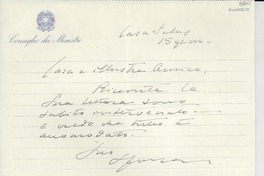 Consiglio dei Ministri
Cara e illustre Amica,
Ricevuta la
Sua lettera sono
subito intervenuto
e credo che tutto è
accomodato.
Suo
Sforza